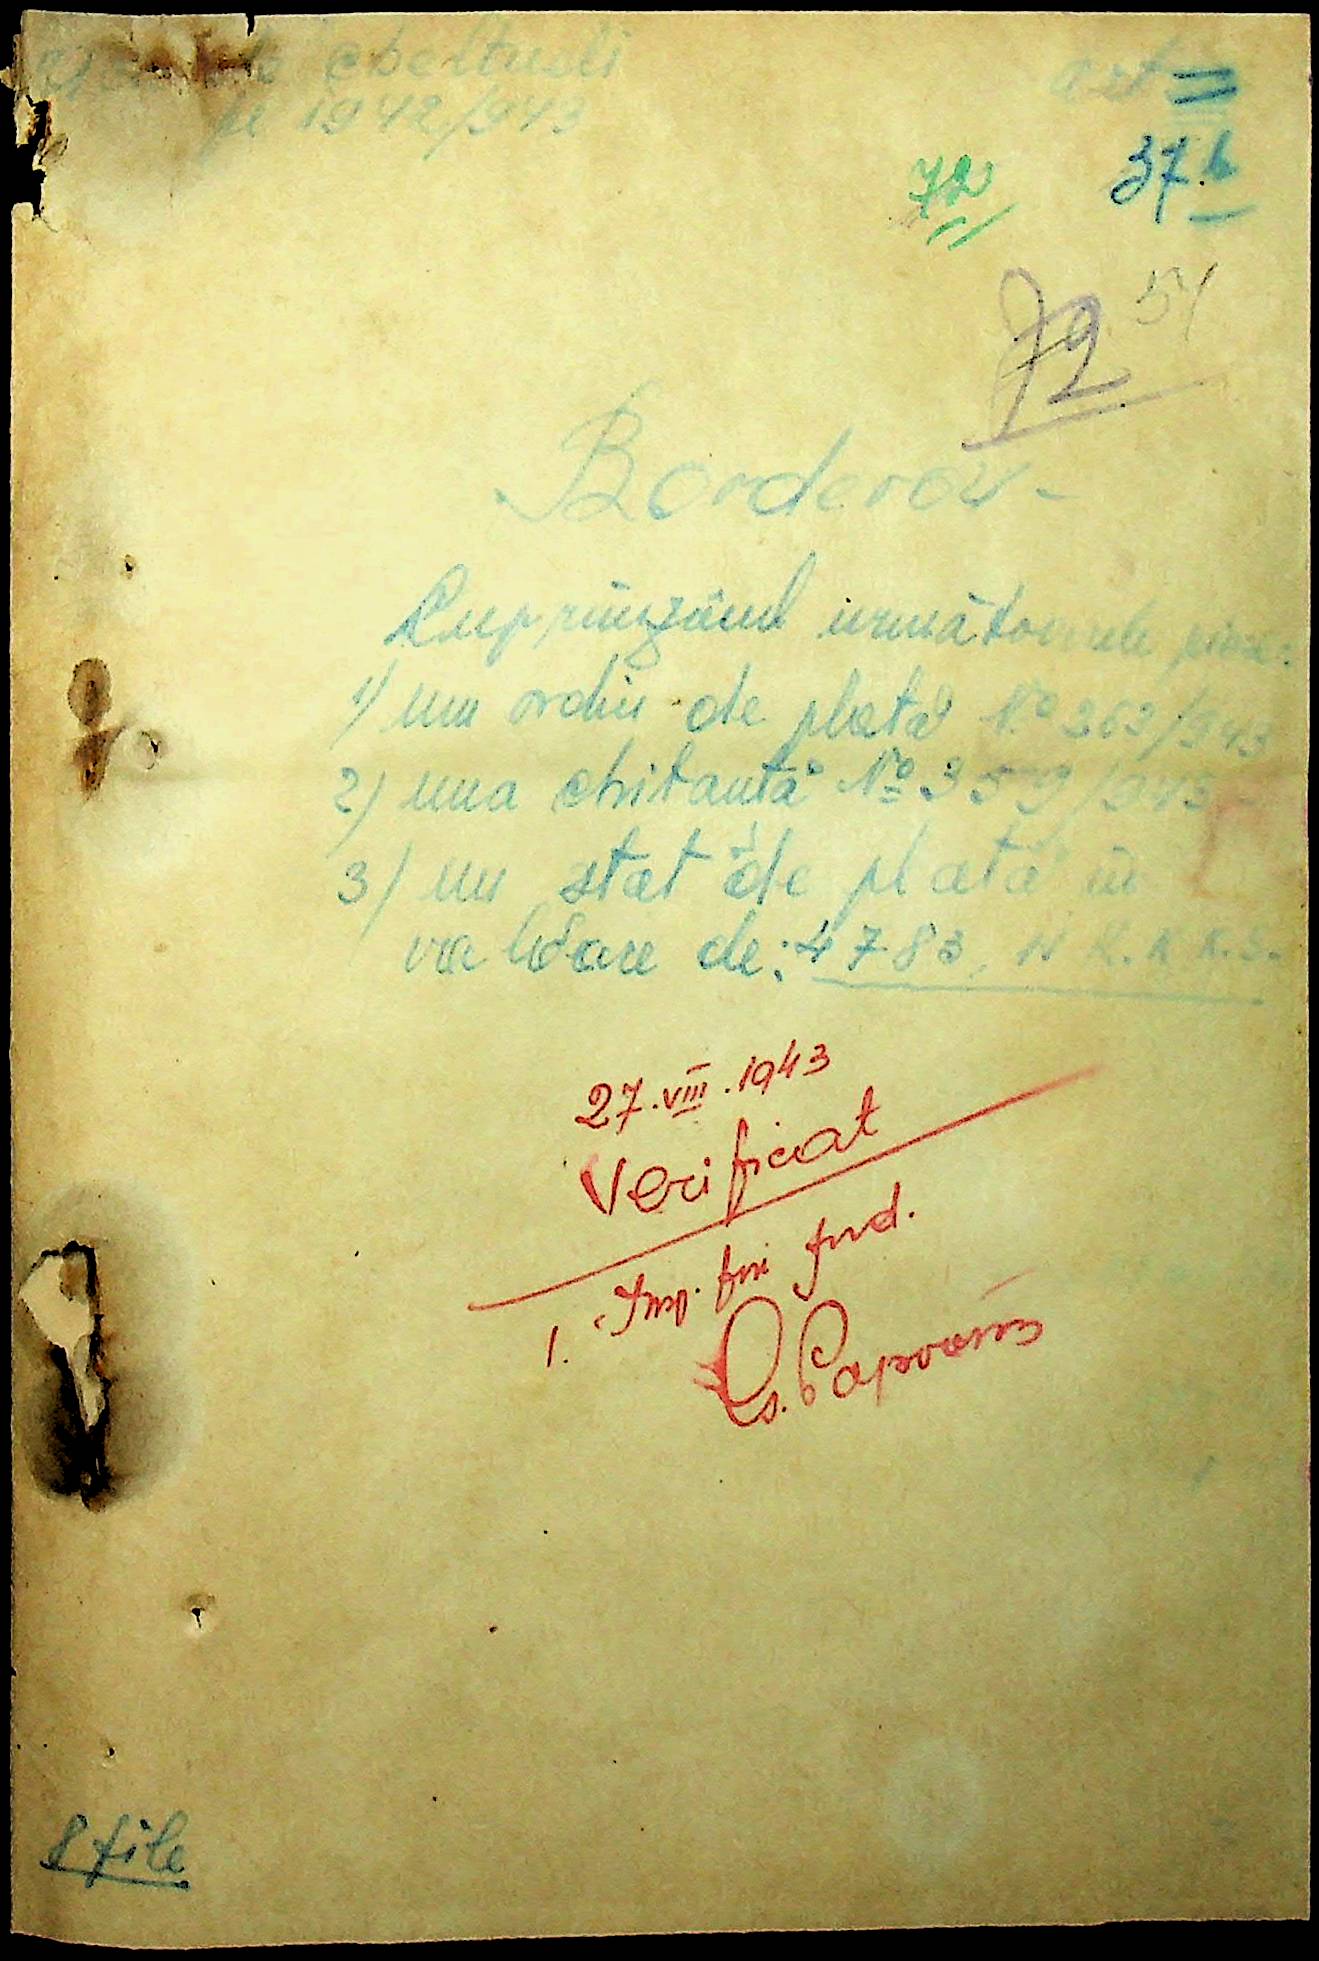 de cheltueli
pe 1942/943
art
37 b
72
54
72
Borderou-
Cuprinzând următoarele piese:
1) un ordin de plată No 363/943
2) una chitanță No 359/943-
3) un stat de plată în
valoare de: 4783,
27.VIII.1943
Verificat
Insp. fin jud.
8 file